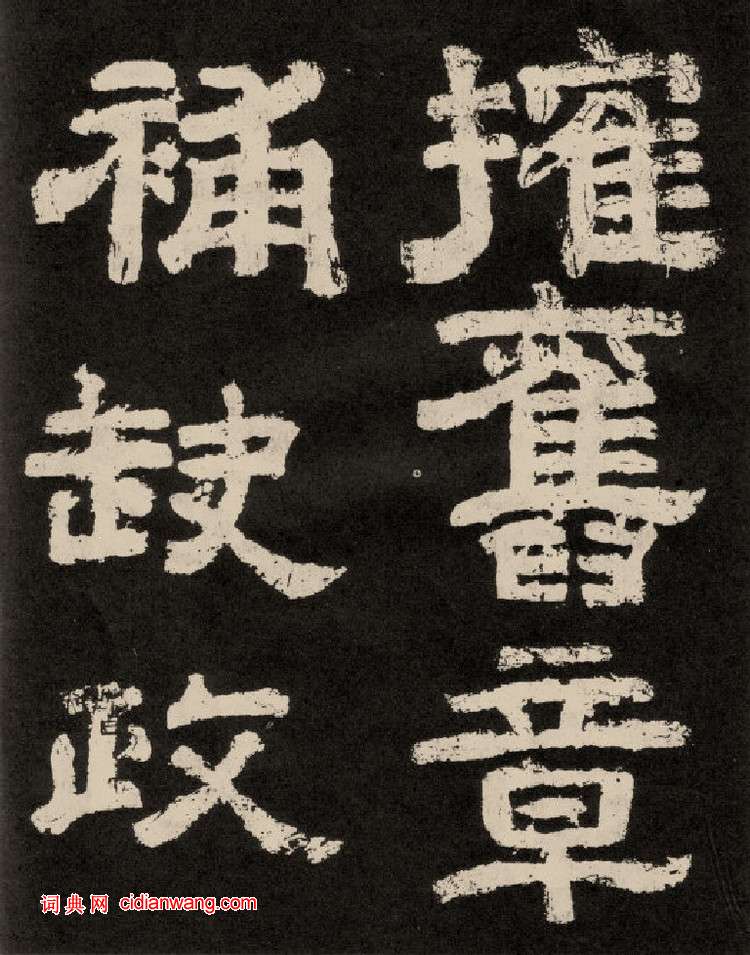 搉舊章
補缺政
词典网 cidianwang.com